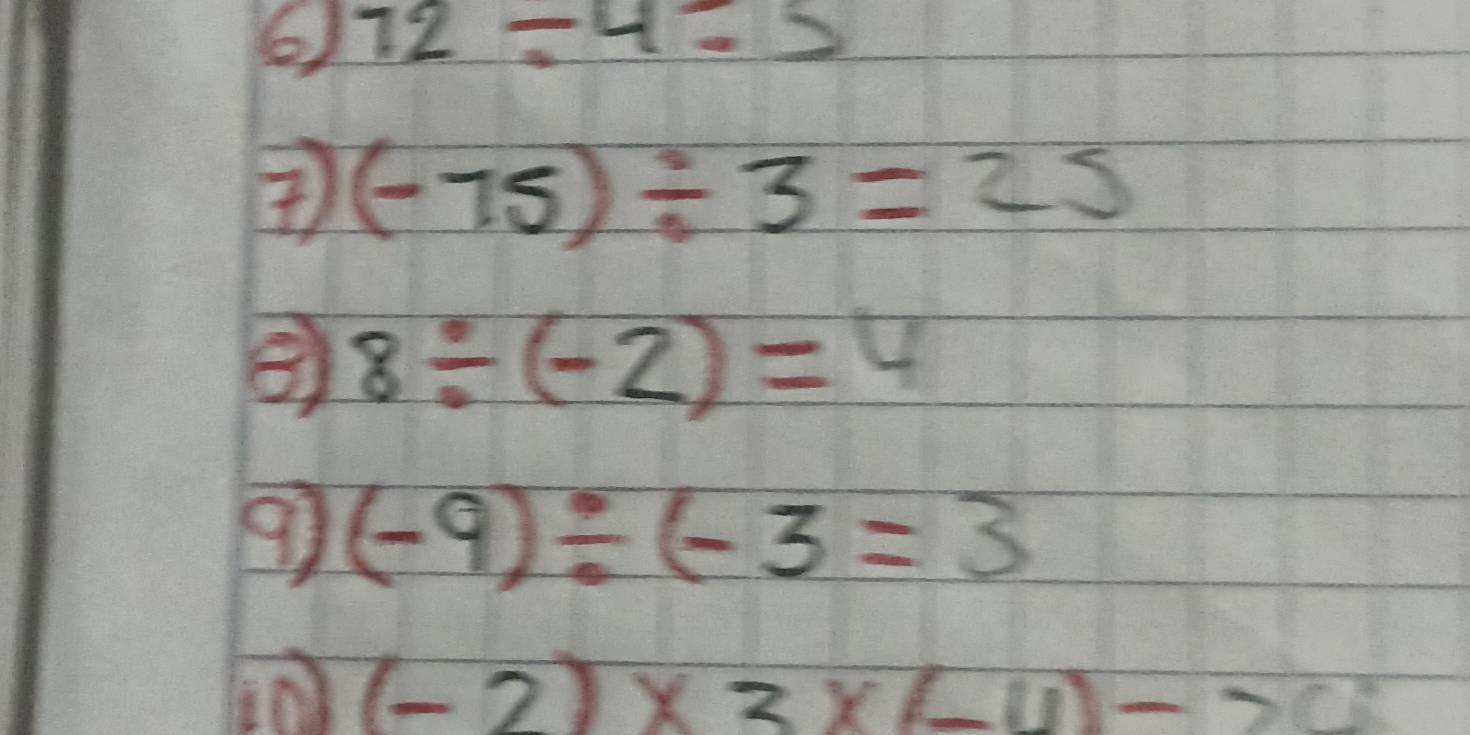 6) 72 ÷ 4 ÷ 3
7) (-75) ÷ 3 = 25
8) 8 ÷ (-2) = 4
9) (-9) ÷ (- 3 = 3
10) (-2) x 3 x (-4) = 24